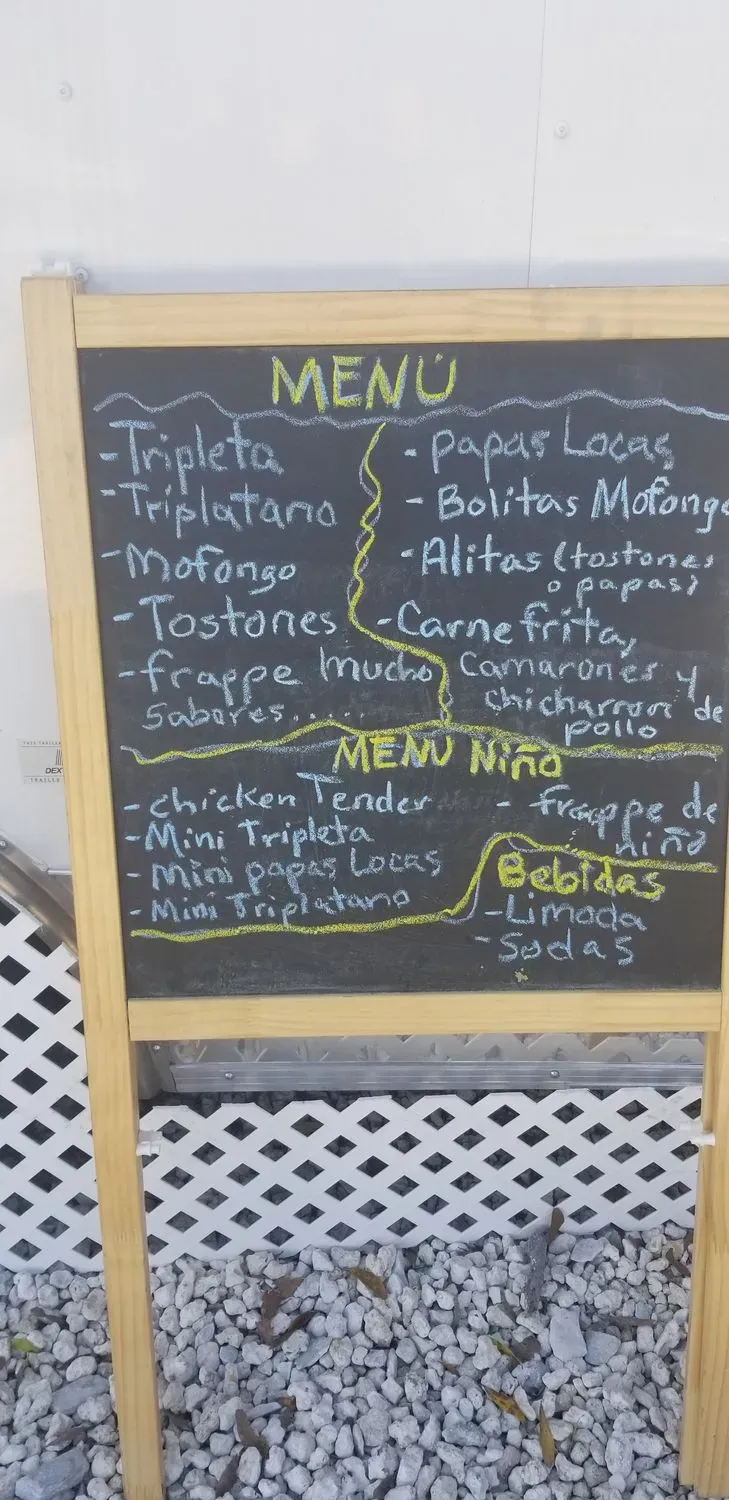 MENÚ
-Tripleta
-Triplatano
-Mofongo
-Tostones
-frappe (mucho
Sabores......
- papas Locas
- Bolitas Mofongo
-Alitas (tostones
o papas)
-Carne frita,
Camarones y
chicharron de
pollo
MENU Niño
-chicken Tender
-Mini Tripleta
- Mini papas Locas
-Mini Triplatano
- frappe de
niño
Bebidas
-Limoda
-Sodas
DEX